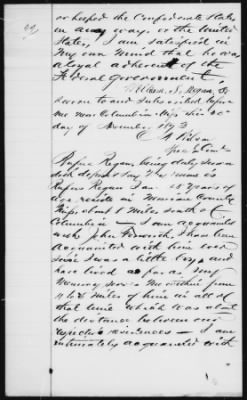 or helped the Confederate States
in any way, or the United
States, I am satisfied in
my own mind that he was
a loyal adherent of the
Federal government.
Regan Sr
Sworn to and subscribed before
me near Columbia Miss this
day of November 1873
Wilson
Spec Com
Rufus Regan, being duly sworn
doth depose & say My name is
Rufus Regan I am 28 years of
age reside in Marion County
Miss about 6 miles South of
Columbia — I am acquainted
with John I have been
acquainted with him ever
since I was a little boy, and
have lived as far as my
memory serves me within from
to 12 miles of him in all of
that time which was about
the distance between our
respective residences — I am
intimately acquainted with